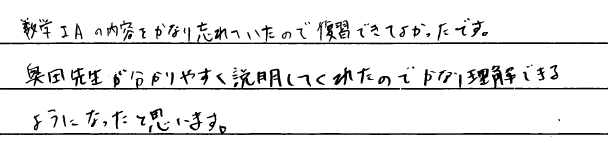 数学ⅠAの内容をかなり忘れていたので復習できてよかったです。
奥田先生が分かりやすく説明してくれたのでかなり理解できる
ようになったと思います。